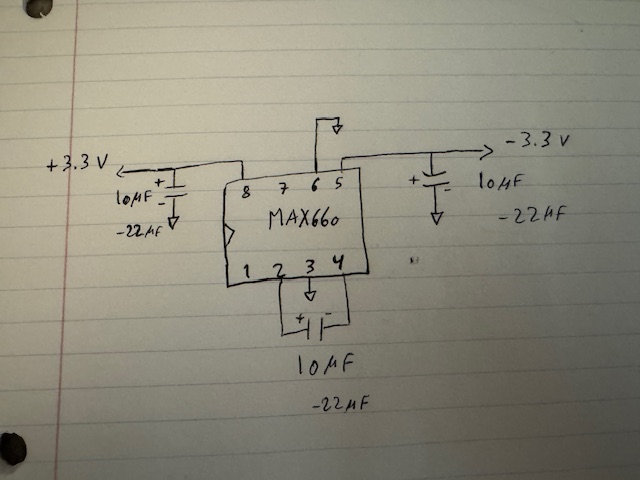 +3.3 V
-3.3 V
+
10µF
-
-22µF
8 7 6 5
MAX660
1 2 3 4
+ -
10µF
-22µF
+
-
10µF
-22µF